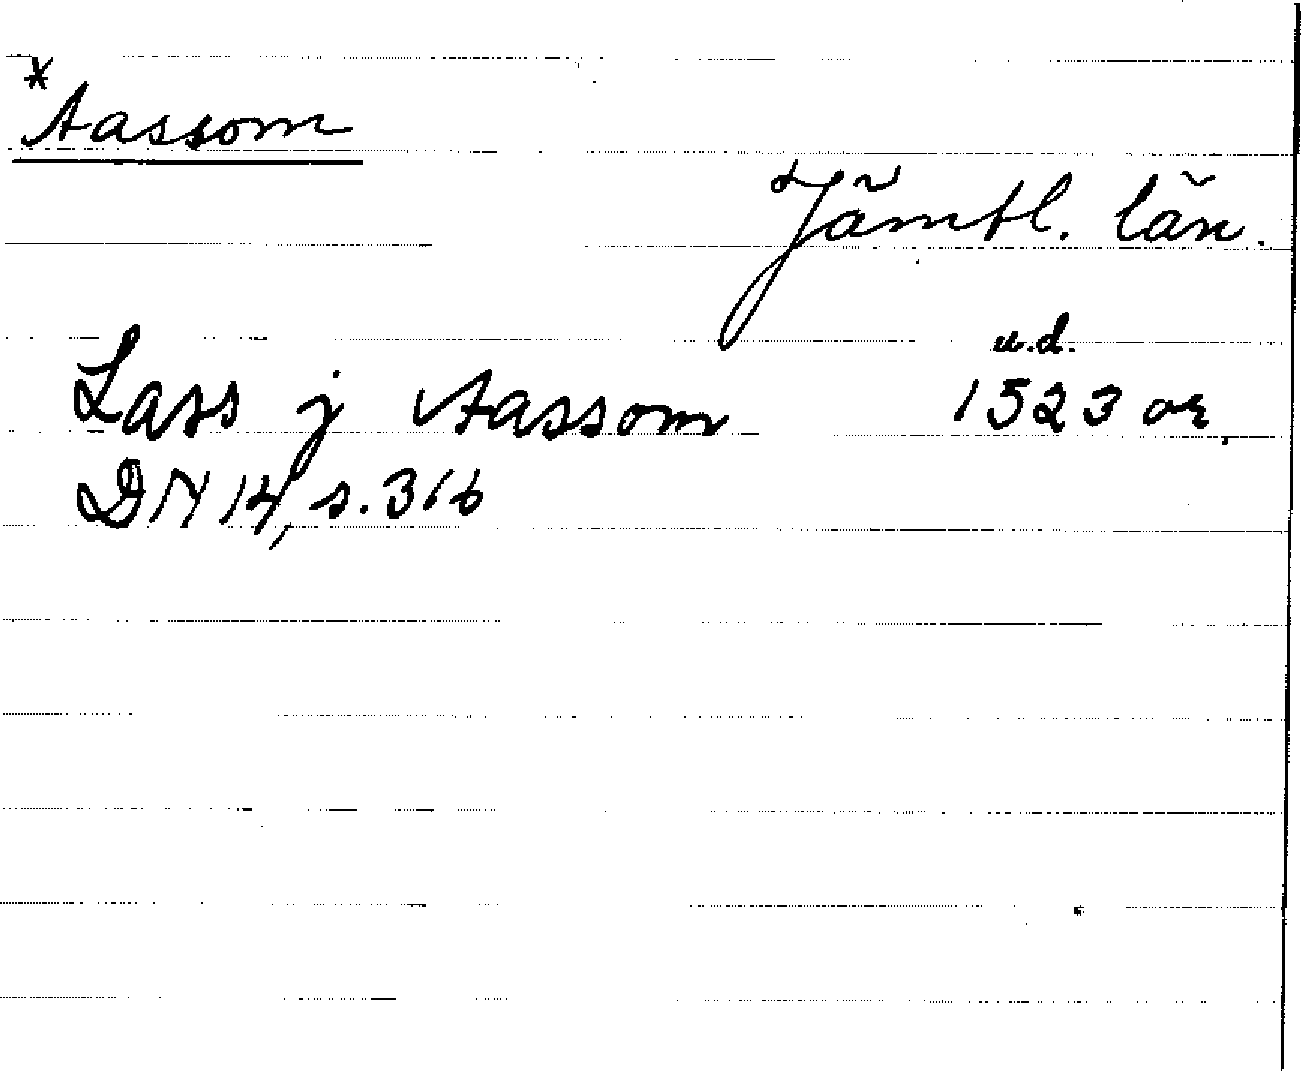 *Aassom
Jämtl. län.
u.d.
Lass j Aassom 1523 or,
DN 14, s. 316